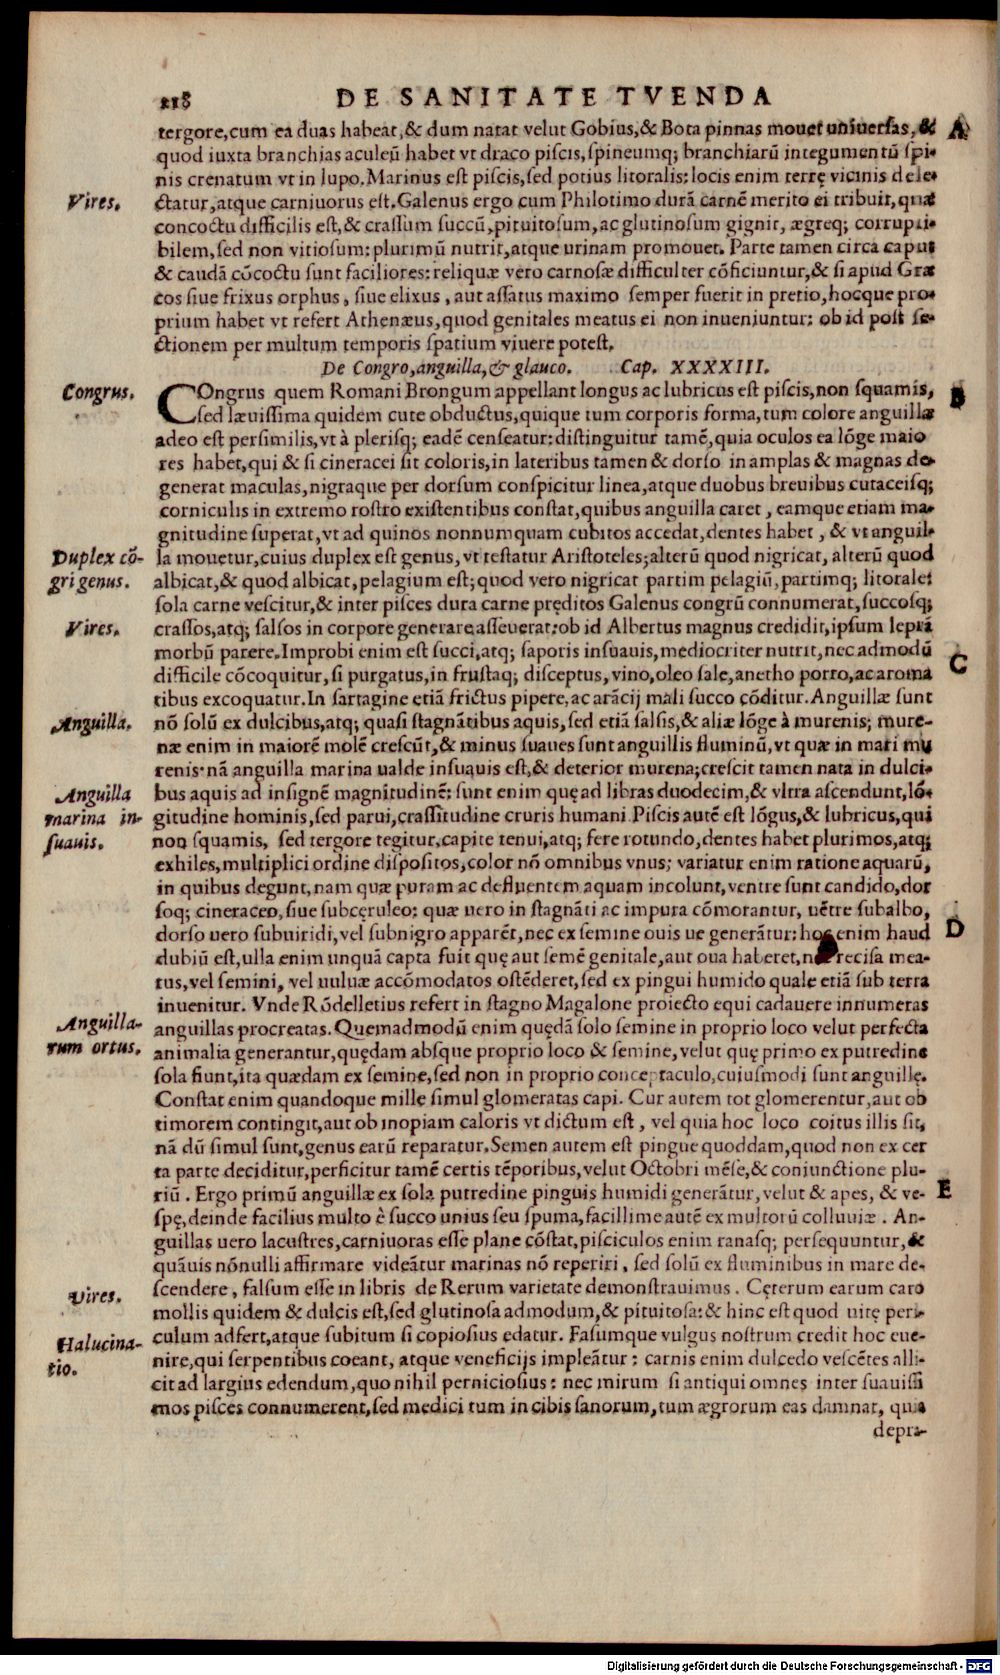 218 DE SANITATE TVENDA
tergore,cum ea duas habeat,& dum natat velut Gobius,& Bota pinnas mouet uniuersas,& A
quod iuxta branchias aculeũ habet vt draco piscis,spineumq; branchiarũ integumentũ spi-
nis crenatum vt in lupo.Marinus est piscis,sed potius litoralis:locis enim terrę vicinis dele-
Vires. ctatur,atque carniuorus est.Galenus ergo cum Philotimo durã carnẽ merito ei tribuit,quæ
concoctu difficilis est,& crassum succũ,pituitosum,ac glutinosum gignit, ægreq; corrupti-
bilem,sed non vitiosum:plurimũ nutrit,atque urinam promouet. Parte tamen circa caput
& caudã cõcoctu sunt faciliores:reliquæ vero carnosæ difficulter cõficiuntur,& si apud Græ
cos siue frixus orphus, siue elixus, aut assatus maximo semper fuerit in pretio,hocque pro-
prium habet vt refert Athenæus,quod genitales meatus ei non inueniuntur: ob id post se-
ctionem per multum temporis spatium viuere potest.
De Congro,anguilla,& glauco. Cap. XXXXIII.
Congrus. COngrus quem Romani Brongum appellant longus ac lubricus est piscis,non squamis, B
sed læuissima quidem cute obductus,quique tum corporis forma,tum colore anguillæ
adeo est persimilis,vt à plerisq; eadẽ censeatur:distinguitur tamẽ,quia oculos ea lõge maio
res habet,qui & si cineracei sit coloris,in lateribus tamen & dorso in amplas & magnas de-
generat maculas,nigraque per dorsum conspicitur linea,atque duobus breuibus cutaceisq;
corniculis in extremo rostro existentibus constat,quibus anguilla caret, eamque etiam ma-
gnitudine superat,vt ad quinos nonnumquam cubitos accedat,dentes habet, & vt anguil-
Duplex cõ- la mouetur,cuius duplex est genus,vt testatur Aristoteles;alterũ quod nigricat, alterũ quod
gri genus. albicat,& quod albicat,pelagium est;quod vero nigricat partim pelagiũ,partimq; litorale:
sola carne vescitur,& inter pisces dura carne pręditos Galenus congrũ connumerat,succosq;
Vires. crassos,atq; salsos in corpore generare asseuerat:ob id Albertus magnus credidit,ipsum leprã
morbũ parere.Improbi enim est succi,atq; saporis insuauis,mediocriter nutrit,nec admodũ
difficile cõcoquitur,si purgatus,in frustaq; disceptus,vino,oleo sale,anetho porro,ac aroma C
tibus excoquatur.In sartagine etiã frictus pipere,ac arãcij mali succo cõditur.Anguillæ sunt
Anguilla. nõ solũ ex dulcibus,atq; quasi stagnãtibus aquis,sed etiã salsis,& aliæ lõge à murenis; mure-
næ enim in maiorẽ molẽ crescũt,& minus suaues sunt anguillis fluminũ,vt quæ in mari mu
renis·nã anguilla marina ualde insuauis est,& deterior murena;crescit tamen nata in dulci-
Anguilla bus aquis ad insignẽ magnitudinẽ: sunt enim quę ad libras duodecim,& vltra ascendunt,lõ-
marina in- gitudine hominis,sed parui,crassitudine cruris humani.Piscis autẽ est lõgus,& lubricus,qui
suauis. non squamis, sed tergore tegitur,capite tenui,atq; fere rotundo,dentes habet plurimos,atq;
exhiles,multiplici ordine dispositos,color nõ omnibus vnus; variatur enim ratione aquarũ,
in quibus degunt,nam quæ puram ac defluentem aquam incolunt,ventre sunt candido,dor
soq; cineraceo,siue subcęruleo: quæ uero in stagnãti ac impura cõmorantur, uẽtre subalbo,
dorso uero subuiridi,vel subnigro apparẽt,nec ex semine ouis ue generãtur: hoc enim haud D
dubiũ est,ulla enim unquã capta fuit quę aut semẽ genitale,aut oua haberet, recisa mea-
tus,vel semini, vel uuluæ accõmodatos ostẽderet,sed ex pingui humido quale etiã sub terra
inuenitur. Vnde Rõdelletius refert in stagno Magalone proiecto equi cadauere innumeras
Anguilla- anguillas procreatas.Quemadmodũ enim quędã solo semine in proprio loco velut perfecta
rum ortus. animalia generantur,quędam absque proprio loco & semine,velut quę primo ex putredine
sola fiunt,ita quædam ex semine,sed non in proprio conceptaculo,cuiusmodi sunt anguillę.
Constat enim quandoque mille simul glomeratas capi. Cur autem tot glomerentur,aut ob
timorem contingit,aut ob inopiam caloris vt dictum est, vel quia hoc loco coitus illis sit,
nã dũ simul sunt,genus earũ reparatur.Semen autem est pingue quoddam,quod non ex cer
ta parte deciditur,perficitur tamẽ certis tẽporibus,velut Octobri mẽse,& coniunctione plu-
riũ. Ergo primũ anguillæ ex sola putredine pinguis humidi generãtur,velut & apes, & ve- E
spę,deinde facilius multo è succo unius seu spuma,facillime autẽ ex multorũ colluuiæ. An-
guillas uero lacustres,carniuoras esse plane cõstat,pisciculos enim ranasq; persequuntur,&
quãuis nõnulli affirmare videãtur marinas nõ reperiri, sed solũ ex fluminibus in mare de-
Vires. scendere, falsum esse in libris de Rerum varietate demonstrauimus. Cęterum earum caro
mollis quidem & dulcis est,sed glutinosa admodum,& pituitosa:& hinc est quod uitę peri-
Halucina- culum adfert,atque subitum si copiosius edatur. Fasumque vulgus nostrum credit hoc eue-
tio. nire,qui serpentibus coeant, atque veneficijs impleãtur: carnis enim dulcedo vescẽtes alli-
cit ad largius edendum,quo nihil perniciosius: nec mirum si antiqui omnes inter suauissi
mos pisces connumerent,sed medici tum in cibis sanorum,tum ægrorum eas damnat, quia
depra-
Digitalisierung gefördert durch die Deutsche Forschungsgemeinschaft - DFG